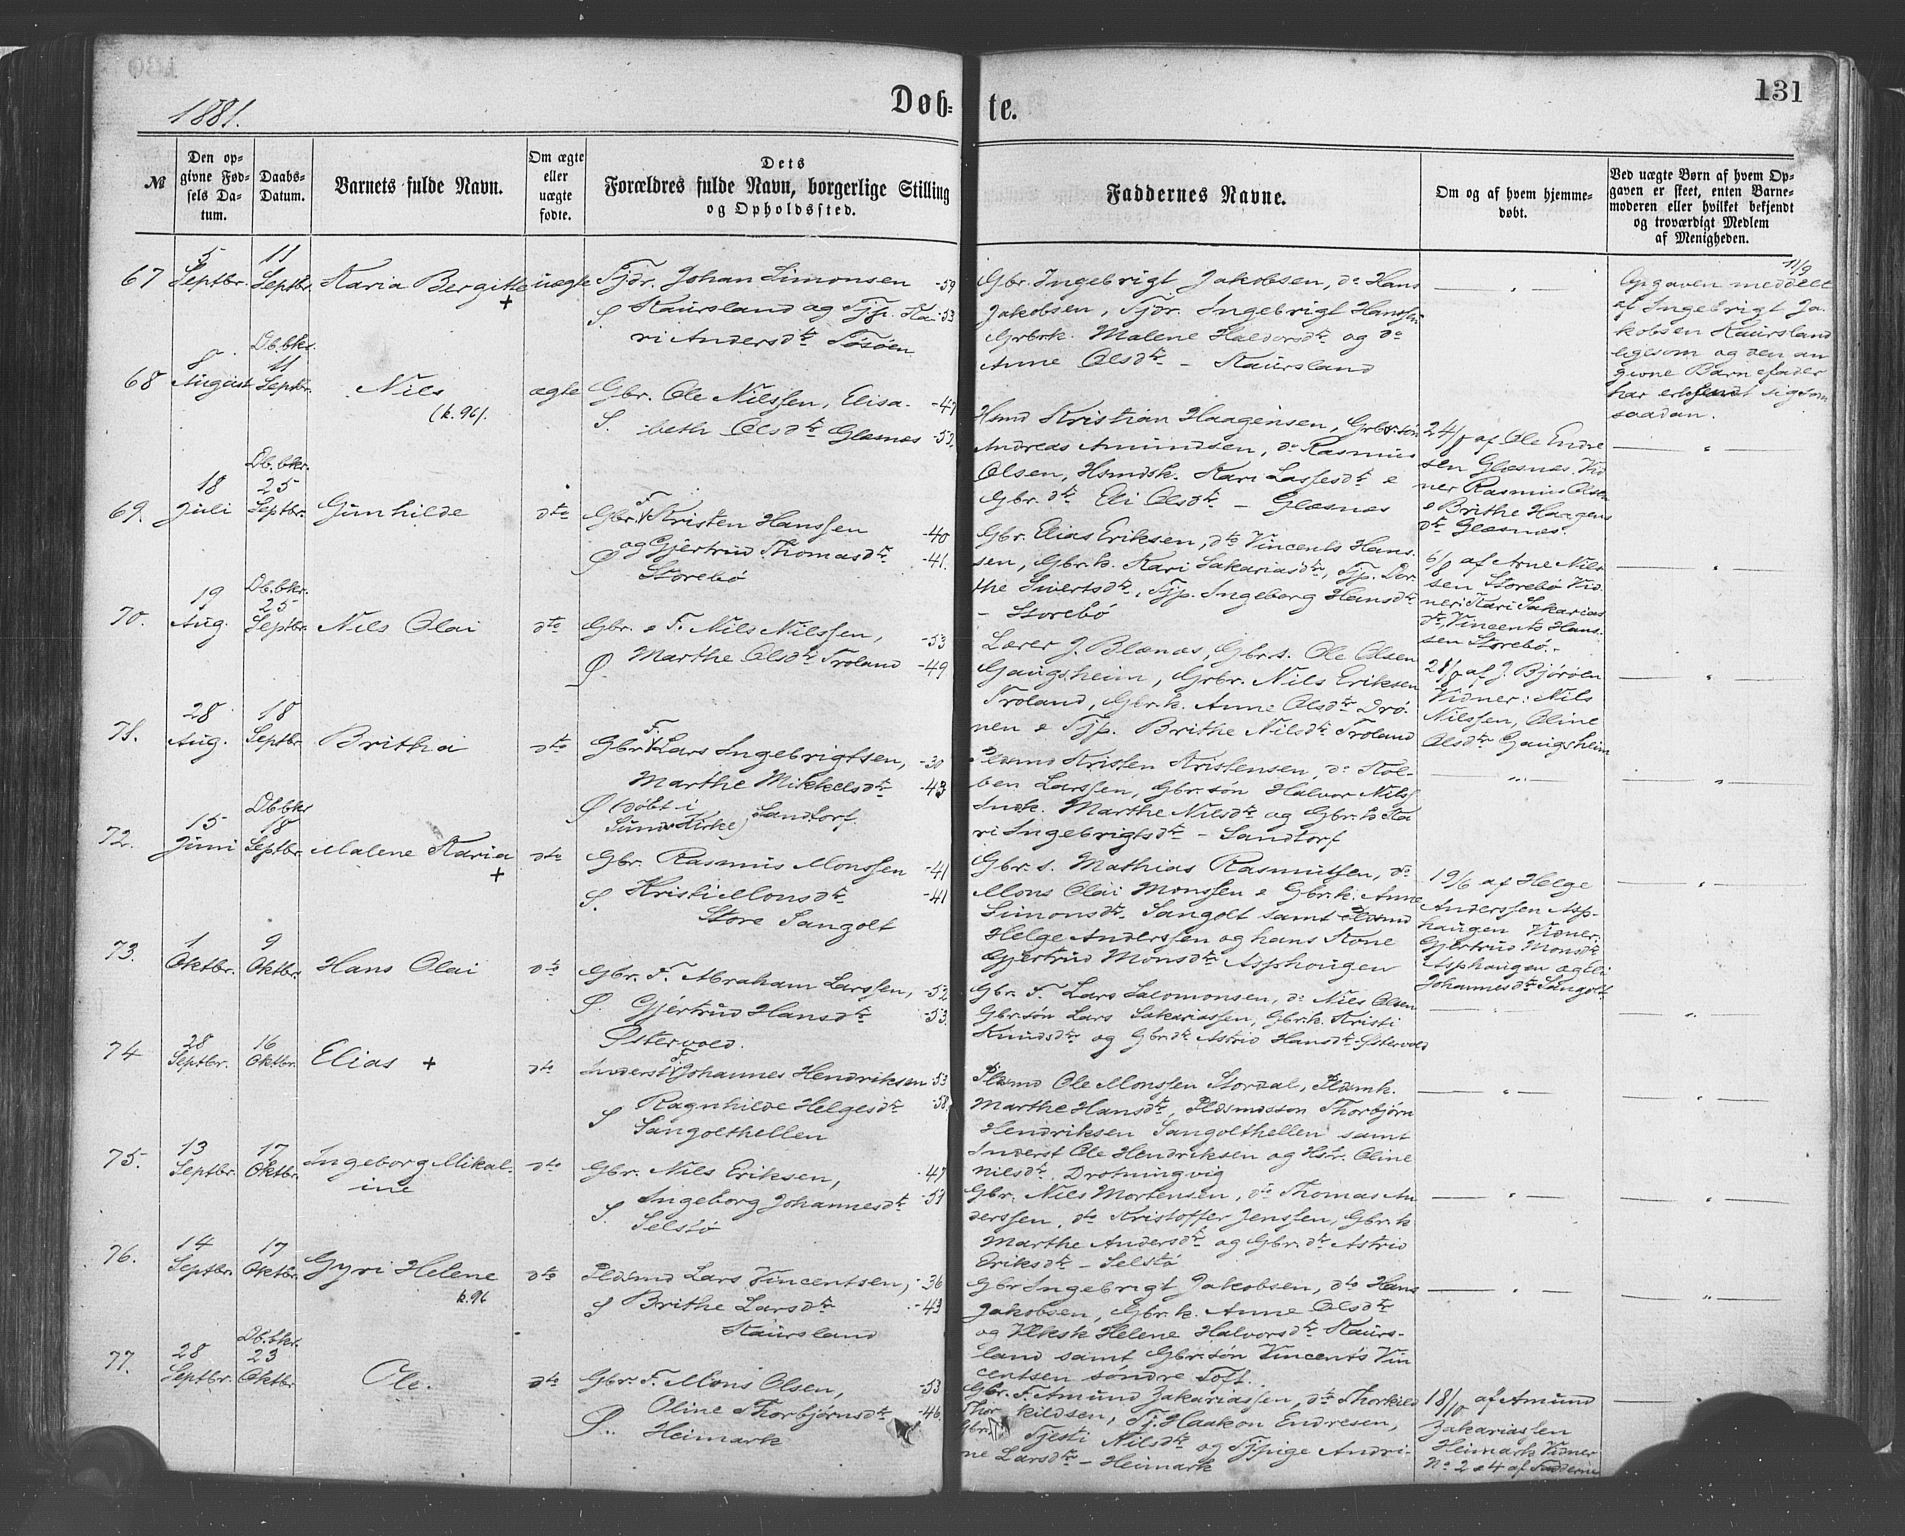 131
1881.
Døb- te.
№
Den op-
givne Fød-
sels Da-
tum.
Daabs-
Datum.
Barnets fulde Navn.
Om ægte
eller
uægte
fødte.
Dets
Forældres fulde Navn, borgerlige Stilling
og Opholdssted.
Faddernes Navne.
Om og af hvem hjemme-
døbt.
Ved uægte Børn af hvem Op-
gaven er skeet, enten Barne-
moderen eller hvilket bekjendt
og troværdigt Medlem
af Menigheden.
67
5
Septbr.
11
Septbr.
Karia Bergitte
+
uægte
Tjdr. Johan Simonsen -59
S Kaursland og Tjp. Ka- -53
ri Andersdtr Tøsøen
Gbr. Ingebrigt Jakobsen, do Hans
Jakobsen, Tjdr. Ingebrigt Hanssen
Grbrk. Malene Haldorsdtr og do
Anne Olsdtr - Kaursland
— " —
11/9
Opgaven meddelt
af Ingebrigt Ja-
kobsen Kaursland
ligesom og den an
givne Barnefader
har erkjendt sig som
saadan.
68
8
August
Db.bks.
11
Septbr.
Nils
(k. 96).
ægte
Gbr. Ole Nilssen, Elisa- -47
S. beth Olsdtr Glæsnæs -52
Hsmd Kristian Haagensen, Grbr.søn
Andreas Amundsen, do Rasmus
Olsen, Hsmdsk. Kari Larsesdtr e
Gbr. dtr Eli Olsdtr - Glæsnæs
24/8 af Ole Endre
sen Glæsnæs. Vid
ner Rasmus Olsen
e Brithe Haagens
dtr Glæsnæs.
— " —
69.
18
Juli
Db.bkr.
25
Septbr.
Gunhilde
dto
Gbr. F. Kristen Hanssen -40
Ø og Gjertrud Thomasdtr -41.
Storebø
Gbr. Elias Eriksen, dto Vincents Hans-
sen, Gbr.k. Kari Sakariasdtr, Tjp. Dor-
the Sivertsdtr, Tjp. Ingeborg Hansdtr
- Storebø
6/8 af Arne Nils-
sen Storebø Vid
ner: Kari Sakarias
dtr, Vincents Hans-
sen Storebø.
— " —
70.
19
Aug.
Db.bkr.
25
Septbr.
Nils Olai
dto
Gbr. e F. Nils Nilssen, -53
Ø. Marthe Olsdtr Troland -49
Lærer J. Blænæs, Gbr.s. Ole Olsen
Gaugsheim, Grbr. Nils Eriksen
Troland, Gbr.k. Anne Olsdtr Drö-
nen e Tjp. Brithe Nilsdtr Troland
28/8 af J. Bjørøen
Vidner: Nils
Nilssen, Oline
Olsdtr Gaugsheim
— " —
71.
28
Aug.
18
Septbr.
Britha
dto
Gbr. F. Lars Ingebrigtsen, -30
Marthe Mikkelsdtr -43
Ø (døbt i
Sunds Kirke) Sandtorf.
Pldsmd Kristen Kristensen, do Kol-
ben Larssen, Gbr.søn Halvor Nilss
Indk. Marthe Nilsdtr og Gbr.k. Ka
ri Ingebrigtsdtr - Sandtorf
— " —
— " —
72.
15
Juni
Db.bks
18
Septbr.
Malene Karia
+
dto
Gbr. Rasmus Monssen -41
S. Kristi Monsdtr -41
Store Sangolt
Gbr. s. Mathias Rasmussen, do
Mons Olai Monssen e Gbr.k. Anne
Simonsdtr Sangolt samt Pldsmd
Helge Anderssen og hans Kone
Gjertrud Monsdtr Asphougen
19/6 af Helge
Anderssen Asp-
haugen Vidner:
Gjertrud Monsdtr
Asphaugen og Eli
Johannesdtr Sangolt.
— " —
73.
1
Oktbr.
9
Oktbr.
Hans Olai
dto
Gbr. F. Abraham Larssen, -52
Ø. Gjertrud Hansdtr -53.
Østervold.
Gbr. F. Lars Salomonsen, do Nils Olsen
Gbr.søn Lars Sakariassen, Gbr.k. Kristi
Knudsdtr og Gbr.dtr Astrid Hansdtr Østervold
— " —
— " —
74
28
Septbr.
16
Oktbr.
Elias +
dto
Inderst F. Johannes Hendriksen -53
S Ragnhilde Helgesdtr -58,
Sangolthellen
Pldsmd Ole Monssen Stordal, Pldsmk.
Marthe Hansdtr, Pldsmdssøn Thorbjørn
Hendriksen Sangolthellen samt
Inderst Ole Hendriksen og Hstr. Oline
Nilsdtr, Drotningvig
— " —
— " —
75.
13
Septbr.
17
Oktbr.
Ingeborg Mikal-
ine
dto
Gbr. Nils Eriksen, -47
S. Ingeborg Johannesdtr -53
Selstø
Gbr. Nils Mortensen, do Thomas An
derssen, dto Kristoffer Jenssen, Gbr.k
Marthe Andersdtr og Gbr.dtr Astrid
Eriksdtr - Selstø
— " —
— " —
76.
14
Septbr.
17
Oktbr.
Gyri Helene
k. 96
dto
Pldsmd Lars Vincentsen, -36
S Brithe Larsdtr -43
Kaursland
Gbr Ingebrigt Jakobsen, dto Hans
Jakobsen, Gbr.k. Anne Olsdtr
og Helene Halvorsdtr Kaurs-
land samt Gbr.søn Vincents Vin
centsen søndre Toft.
— " —
— " —
77.
28
Septbr.
Db.bks.
23
Oktbr.
Ole.
dto
Gbr. F. Mons Olsen, -53
Ø. Oline Thorbjørnsdtr -46.
Heimark
Gbr. F. Amund Zakariassen, dto Thorkild
Thor kildsen, Tj. Haakon Endresen,
Gbr. Tjesti Nilsdtr og Tjpige Andri-
ne Larsdtr - Heimark
18/10 af Amund
Zakariassen
Heimark Vidner
No 2 e 4 af Fadderne
— " —